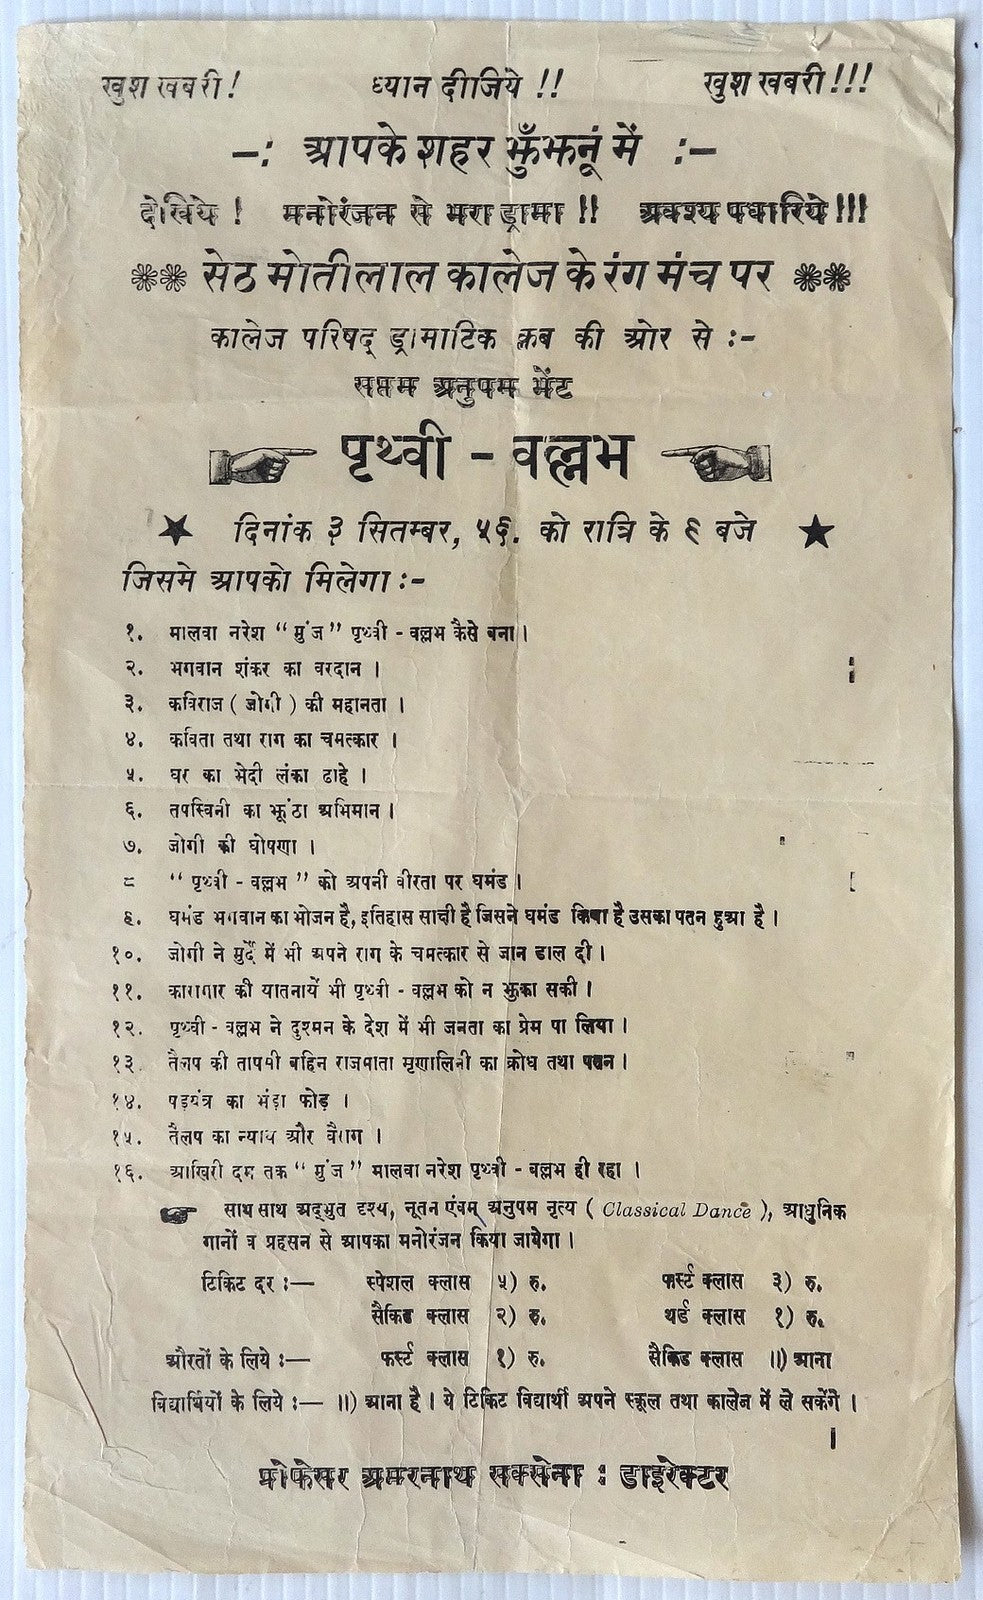 खुश खबरी ! ध्यान दीजिये !! खुश खबरी !!!
-: आपके शहर झुँझनूं में :-
देखिये ! मनोरंजन से भरा ड्रामा !! अवश्य पधारिये !!!
सेठ मोतीलाल कालेज के रंग मंच पर
कालेज परिषद् ड्रामाटिक क्लब की ओर से :-
सप्तम अनुपम भेंट
पृथ्वी - वल्लभ
दिनांक ३ सितम्बर, ५६. को रात्रि के ९ बजे
जिसमे आपको मिलेगा :-
१. मालवा नरेश “मुंज” पृथ्वी - वल्लभ कैसे बना ।
२. भगवान शंकर का वरदान ।
३. कविराज ( जोगी ) की महानता ।
४. कविता तथा राग का चमत्कार ।
५. घर का भेदी लंका ढाहे ।
६. तपस्विनी का झूंठा अभिमान ।
७. जोगी की घोषणा ।
८ “ पृथ्वी - वल्लभ ” को अपनी वीरता पर घमंड ।
९. घमंड भगवान का भोजन है, इतिहास साक्षी है जिसने घमंड किया है उसका पतन हुआ है ।
१०. जोगी ने मुर्दे में भी अपने राग के चमत्कार से जान डाल दी ।
११. कारागार की यातनायें भी पृथ्वी - वल्लभ को न झुका सकी ।
१२. पृथ्वी - वल्लभ ने दुश्मन के देश में भी जनता का प्रेम पा लिया ।
१३. तैलप की तापसी बहिन राजमाता मृणालिनी का क्रोध तथा पतन ।
१४. षड़यंत्र का भंड़ा फोड़ ।
१५. तैलप का न्याय और वैराग ।
१६. आखिरी दम तक “ मुंज ” मालवा नरेश पृथ्वी - वल्लभ ही रहा ।
साथ साथ अद्भुत दृश्य, नूतन एंवम् अनुपम नृत्य ( Classical Dance ), आधुनिक
गानों व प्रहसन से आपका मनोरंजन किया जायेगा ।
टिकिट दर :— स्पेशल क्लास ५) रु. फर्स्ट क्लास ३) रु.
सैकिंड क्लास २) रु. थर्ड क्लास १) रु.
औरतों के लिये :— फर्स्ट क्लास १) रु. सैकिंड क्लास ॥) आना
विद्यार्थियों के लिये :— ॥) आना है । ये टिकिट विद्यार्थी अपने स्कूल तथा कालेज में ले सकेंगे ।
प्रोफेसर अमरनाथ सक्सेना : डाइरेक्टर